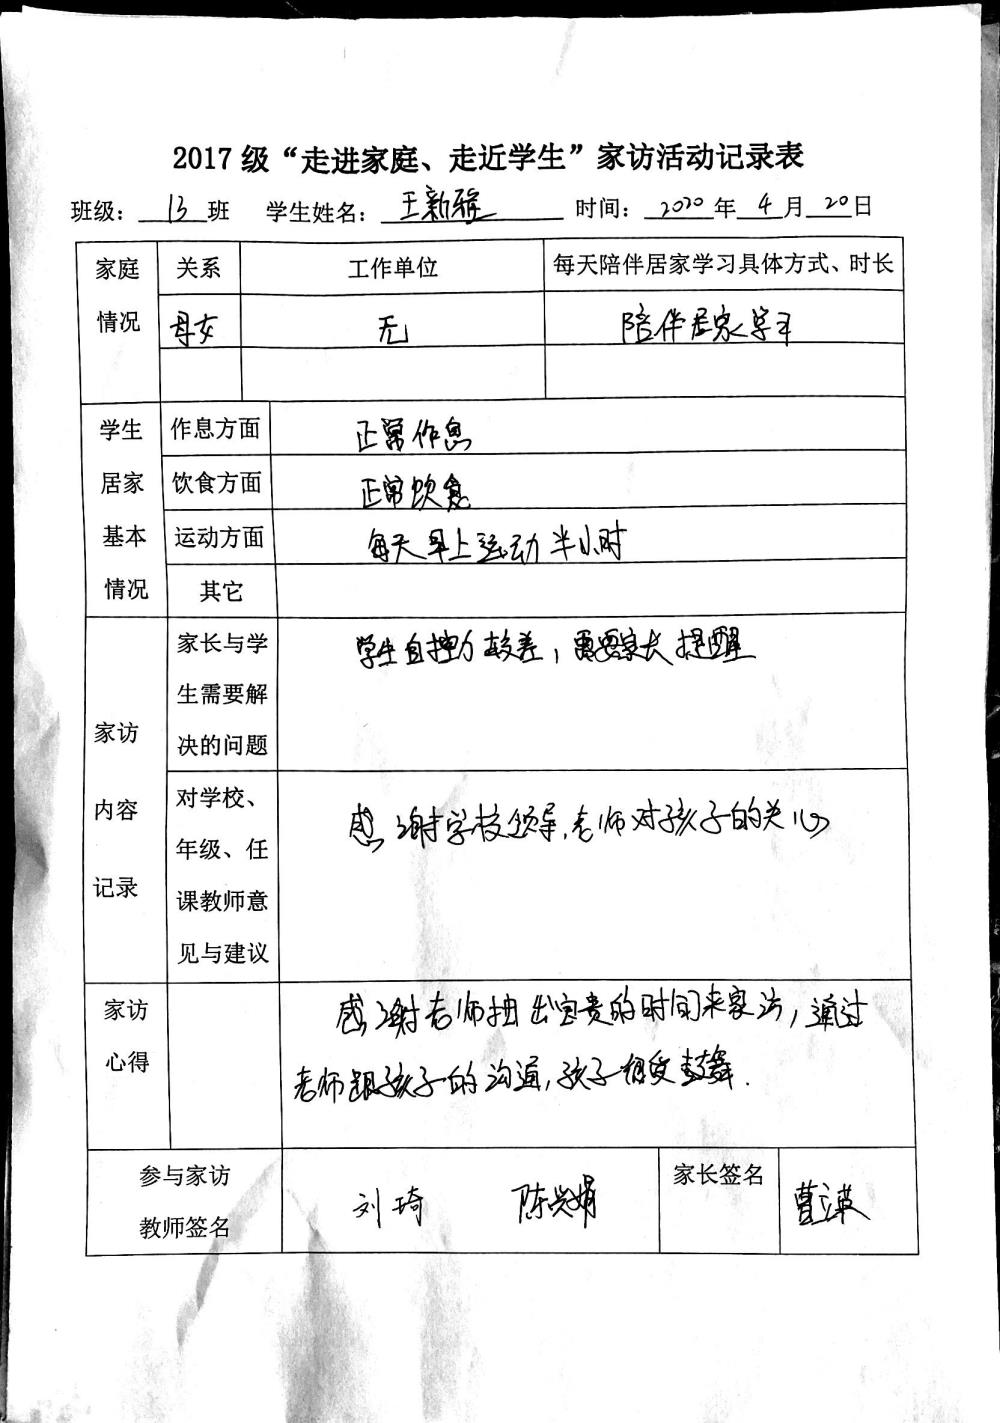 2017 级“走进家庭、走近学生”家访活动记录表
班级： 13 班 学生姓名： 王新雅 时间： 2020 年 4 月 20 日
家庭 关系 工作单位 每天陪伴居家学习具体方式、时长
情况 母女 无 陪伴居家学习
学生 作息方面 正常作息
居家 饮食方面 正常饮食
基本 运动方面 每天早上运动半小时
情况 其它
家长与学 学生自控力较差，需要家长提醒
生需要解
家访 决的问题
内容 对学校、 感谢学校领导,老师对孩子的关心
年级、任
记录 课教师意
见与建议
家访 感谢老师抽出宝贵的时间来家访，通过
心得 老师跟孩子的沟通,孩子很受鼓舞.
参与家访 刘琦 陈兴娟 家长签名 曹立英
教师签名